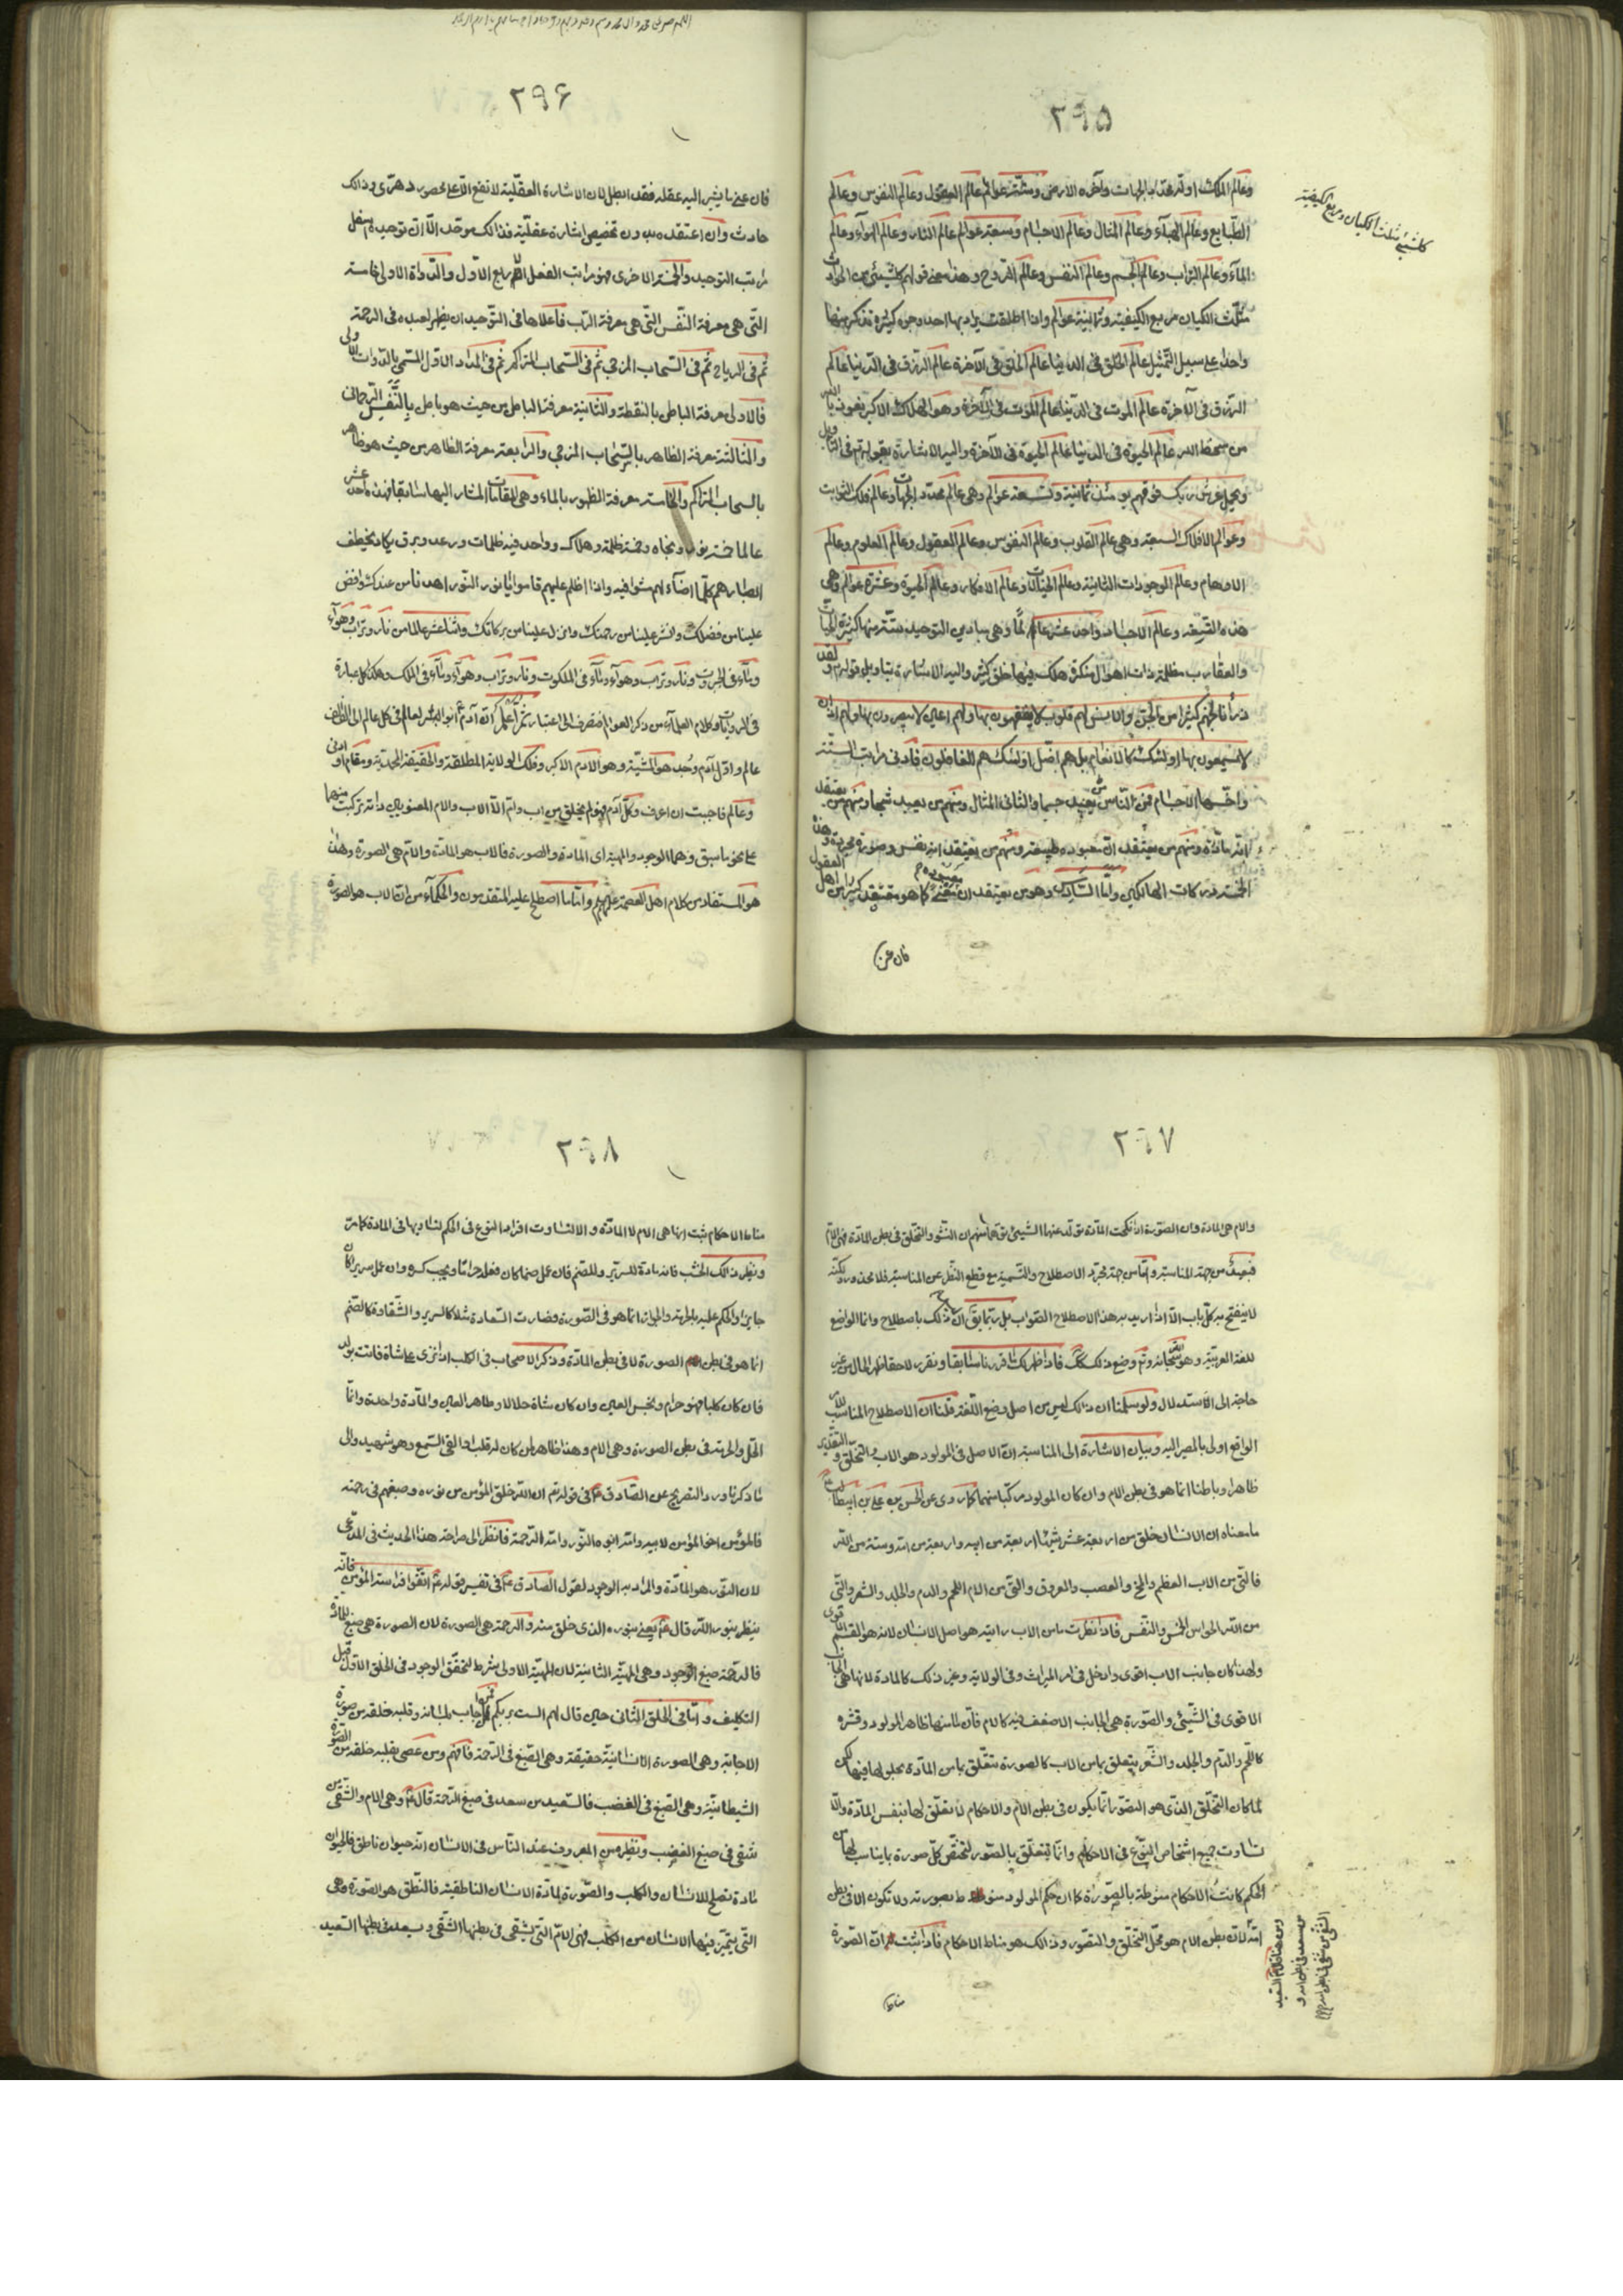 ٢٩٥
وعالم الملك اوله محدد الجهات وآخره الارض وستة عوالم عالم العقول وعالم النفوس وعالم
الطبايع وعالم الهباء وعالم المثال وعالم الاجسام وسبعة عوالم عالم النار وعالم الهواء وعالم
الماء وعالم التراب وعالم الجسم وعالم النفس وعالم الروح وهذا معنى قولهم كل شيئ من الحوادث
مثلث الكيان مربع الكيفية وثمانية عوالم واذا اطلقت يراد بها احد وجوه كثيرة نذكر منها
واحدا على سبيل التمثيل عالم الخلق في الدنيا عالم الخلق في الآخرة عالم الرزق في الدنيا عالم
الرزق في الآخرة عالم الموت في الدنيا عالم الموت في الآخرة وهو الهلاك الاكبر نعوذ بالله
من سخط الله عالم الحيوة في الدنيا عالم الحيوة في الآخرة واليه الاشارة بقوله تع في التأويل
ويحمل عرش ربك فوقهم يومئذ ثمانية وتسعة عوالم وهي عالم محدد الجهات وعالم فلك الثوابت
وعوالم الافلاك السبعة وهي عالم القلوب وعالم النفوس وعالم العقول وعالم العلوم وعالم
الاوهام وعالم الوجودات الثانية وعالم الخيالات وعالم الافكار وعالم الحيوة وعشرة عوالم وهي
هذه التسعة وعالم الاجساد واحد عشر عالما وهي مبادي التوحيد ستة منها كثيرة الحيات
والعقارب مظلمة ذات اهوال منكرة هلك فيها خلق كثير واليه الاشارة بتأويل قوله تع ولقد
ذرأنا لجهنم كثيرا من الجن والانس لهم قلوب لا يفقهون بها ولهم اعين لا يبصرون بها ولهم اذان
لا يسمعون بها اولئك كالانعام بل هم اضل اولئك هم الغافلون فادنى مراتب الستة
واخسها الاجسام فمن الناس من يعبد جسما والثاني المثال ومنهم من يعبد شبحا ومنهم من يعتقد
انه مادة ومنهم من يعتقد ان معبوده طبيعة ومنهم من يعتقد انه نفس وصورة مجردة وهذه
الخمسة دركات الهالكين واما السادس وهو من يعتقد ان معبوده معنى كما هو معتقد كثير من اهل العقول
فان عن
كل شيئ مثلث الكيان ومربع الكيفية
٢٩٦
فان عنى ما يشير اليه عقله فقد ابطل لان الاشارة العقلية لا تقع الا على محصور دهري وذلك
حادث وان اعتقده بدون تخصيص اشارة عقلية فذالك موحد الا ان توحيده اسفل
مراتب التوحيد والخمسة الاخرى فهو مراتب الفعل الاربع الاول والدواة الاولى خامسة
التي هي معرفة النفس التي هي معرفة الرب فاعلاها في التوحيد ان يظهر لعبده في الرحمة
ثم في الرياح ثم في السحاب المزجي ثم في السحاب المتراكم ثم في المداد الاول المسمى بالدوات الاولى
فالاولى معرفة الباطن بالنقطة والثانية معرفة الباطن من حيث هو باطن بالنفس الرحماني
والثالثة معرفة الظاهر بالسحاب المزجي والرابعة معرفة الظاهر من حيث هو ظاهر
بالسحاب المتراكم والخامسة معرفة الظهور بالماء وهي المقامات المشار اليها سابقا فهذه احد عشر
عالما خمسة نور ونجاة وخمسة ظلمة وهلاك وواحد فيه ظلمات ورعد وبرق يكاد يخطف
ابصارهم كلما اضاء لهم مشوا فيه واذا اظلم عليهم قاموا يا نور النور اهدنا من عندك وافض
علينا من فضلك وانشر علينا من رحمتك وانزل علينا من بركاتك واثنا عشر عالما من نار وتراب وهواء
وماء في الجبروت ونار وتراب وهواء وماء في الملكوت ونار وتراب وهواء وماء في الملك وهكذا كل عبارة
في الروايات وكلام العلماء من ذكر العوالم فتصرف الى اعتبار ثم اعلم انه آدم ع ابو البشر لعالم في كل عالم الى الف الف
عالم واول آدم وجد هو المشية وهو الآدم الاكبر وفلك الولاية المطلقة والحقيقة المحمدية ومقام او ادنى
وعالم فاحببت ان اعرف وكل آدم فهو لم يخلق من اب وام الا الاب والام المعنويين ذاته تركبت منهما
على نحو ما سبق وهما الوجود والمهية اى المادة والصورة فالاب هو المادة والام هي الصورة وهذا
هو المستفاد من كلام اهل العصمة عليهم السلام واما ما اصطلح عليه المتقدمون والحكماء من ان الاب هو الصورة
٢٩٧
والام هي المادة وان الصورة اذا نكحت المادة تولد عنهما الشيئ توهما منهم ان النشو والتخلق في بطن المادة فهي الام
فبعيد من جهة المناسبة واما من جهة مجرد الاصطلاح والتسمية مع قطع النظر عن المناسبة فلا محذور ولكنه
لا ينفتح به كل باب الا اذا اريد به هذا الاصطلاح الصواب بل ربما يق ان ذلك باصطلاح وانما الواضع
للغة العربية وهو الله سبحانه وتع وضع ذلك كذلك فاذا ظهر لك ما قررنا سابقا ونقرر لاحقا ظهر الحال من غير
حاجة الى الاستدلال ولو سلمنا ان ذلك ليس من اصل وضع اللغة قلنا ان الاصطلاح المناسب للامر
الواقع اولى بالمصير اليه وبيان الاشارة الى المناسبة ان الاصل في المولود هو الاب والتخلق والتقدير
ظاهرا وباطنا انما هو في بطن الام وان كان المولود مركبا منهما كما روي عن الحسن بن علي بن ابيطالب ع
ما معناه ان الانسان خلق من اربعة عشر شيئا اربعة من ابيه واربعة من امه وستة من الله
فالتي من الاب العظم والمخ والعصب والعروق والتي من الام اللحم والدم والجلد والشعر والتي
من الله الحواس الخمس والنفس فاذا نظرت ما من الاب رايته هو اصل الانسان لانه هو القسم الاقوى
ولهذا كان جانب الاب اقوى وادخل في امر الميراث وفي الولاية وغير ذلك كالمادة لانها هي الجانب
الاقوى في الشيئ والصورة هي الجانب الاضعف فيه كالام فان ما منها ظاهر المولود وقشره
كاللحم والدم والجلد والشعر يتعلق بما من الاب كالصورة تتعلق بما من المادة بحلولها فيها لكن
لما كان التخلق الذي هو التصور انما يكون في بطن الام والاحكام لا تعلق لها بنفس المادة والا
تساوت جميع اشخاص النوع في الاحكام وانما تتعلق بالصور لتختص كل صورة بما يناسب لها من
الحكم كانت الاحكام منوطة بالصورة كما ان حكم المولود منوط بصورته ولا تكون الا في بطن
امه لان بطن الام هو محل التخلق والتصور وذلك هو مناط الاحكام فاذا ثبت ان الصورة
مناط
ومن هنا قال ع السعيد
من سعد في بطن امه و
الشقي من شقي في بطن امه
٢٩٨
مناط الاحكام ثبت انها هي الام لا المادة والا لتساوت افراد النوع في الحكم لتساويها في المادة كما مر
ونظير ذلك الخشب فانه مادة للسرير وللصنم فان عمل صنما كان فعله حراما ويجب كسره وان عمل سريرا كان
جايزا والحكم عليه بالحرمة والجواز انما هو في الصورة فصارت السعادة مثلا كالسرير والشقاوة كالصنم
انما هو في بطن الصورة لا في بطن المادة وذكر الاصحاب في الكلب اذا نزى على شاة فاتت بولد
فان كان كلبا فهو حرام ونجس العين وان كان شاة حلالا وطاهر العين والمادة واحدة وانما
الحل والحرمة في بطن الصورة وهي الام وهذا ظاهر لمن كان له قلب او القى السمع وهو شهيد والى
ما ذكرنا ورد التصريح عن الصادق ع في قوله تع ان الله خلق المؤمن من نوره وصبغهم في رحمته
فالمؤمن اخو المؤمن لابيه وامه ابوه النور وامه الرحمة فانظر الى صراحة هذا الحديث في المدعى
لان النور هو المادة والمراد به الوجود لقول الصادق ع في تفسير قوله ع اتقوا فراسة المؤمن فانه
ينظر بنور الله قال ع يعني بنوره الذي خلق منه والرحمة هي الصورة لان الصورة هي صبغ المادة
فالرحمة صبغ الوجود وهي المهية الثانية لان المهية الاولى شرط لتحقق الوجود في الخلق الاول قبل
التكليف واما في الخلق الثاني حين قال لهم الست بربكم فمن اجاب بلسانه وقلبه خلقه من صورة
الاجابة وهي الصورة الانسانية حقيقة وهي الصبغ في الرحمة فافهم ومن عصى بقلبه خلقه من الصورة
الشيطانية وهي الصبغ في الغضب فالسعيد من سعد في صبغ الرحمة قال ع وهي الام والشقي من
شقي في صبغ الغضب ونظيره من المعروف عند الناس في الانسان انه حيوان ناطق فالحيوان
مادة تصلح للانسان والكلب والصورة لمادة الانسان الناطقية فالنطق هو الصورة وهي
التي يتميز فيها الانسان من الكلب فهي الام التي يشقى في بطنها الشقي ويسعد في بطنها السعيد